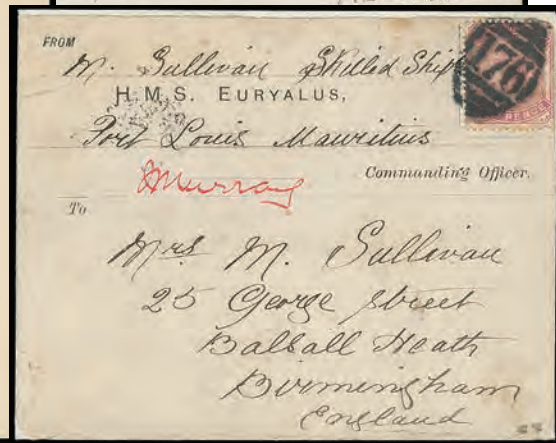 FROM
M. Sullivan Skilled Ship
H.M.S. EURYALUS,
Port Louis Mauritius
Murray
Commanding Officer.
To
Mrs M. Sullivan
25 George Street
Balsall Heath
Birmingham
England
176
PENCE